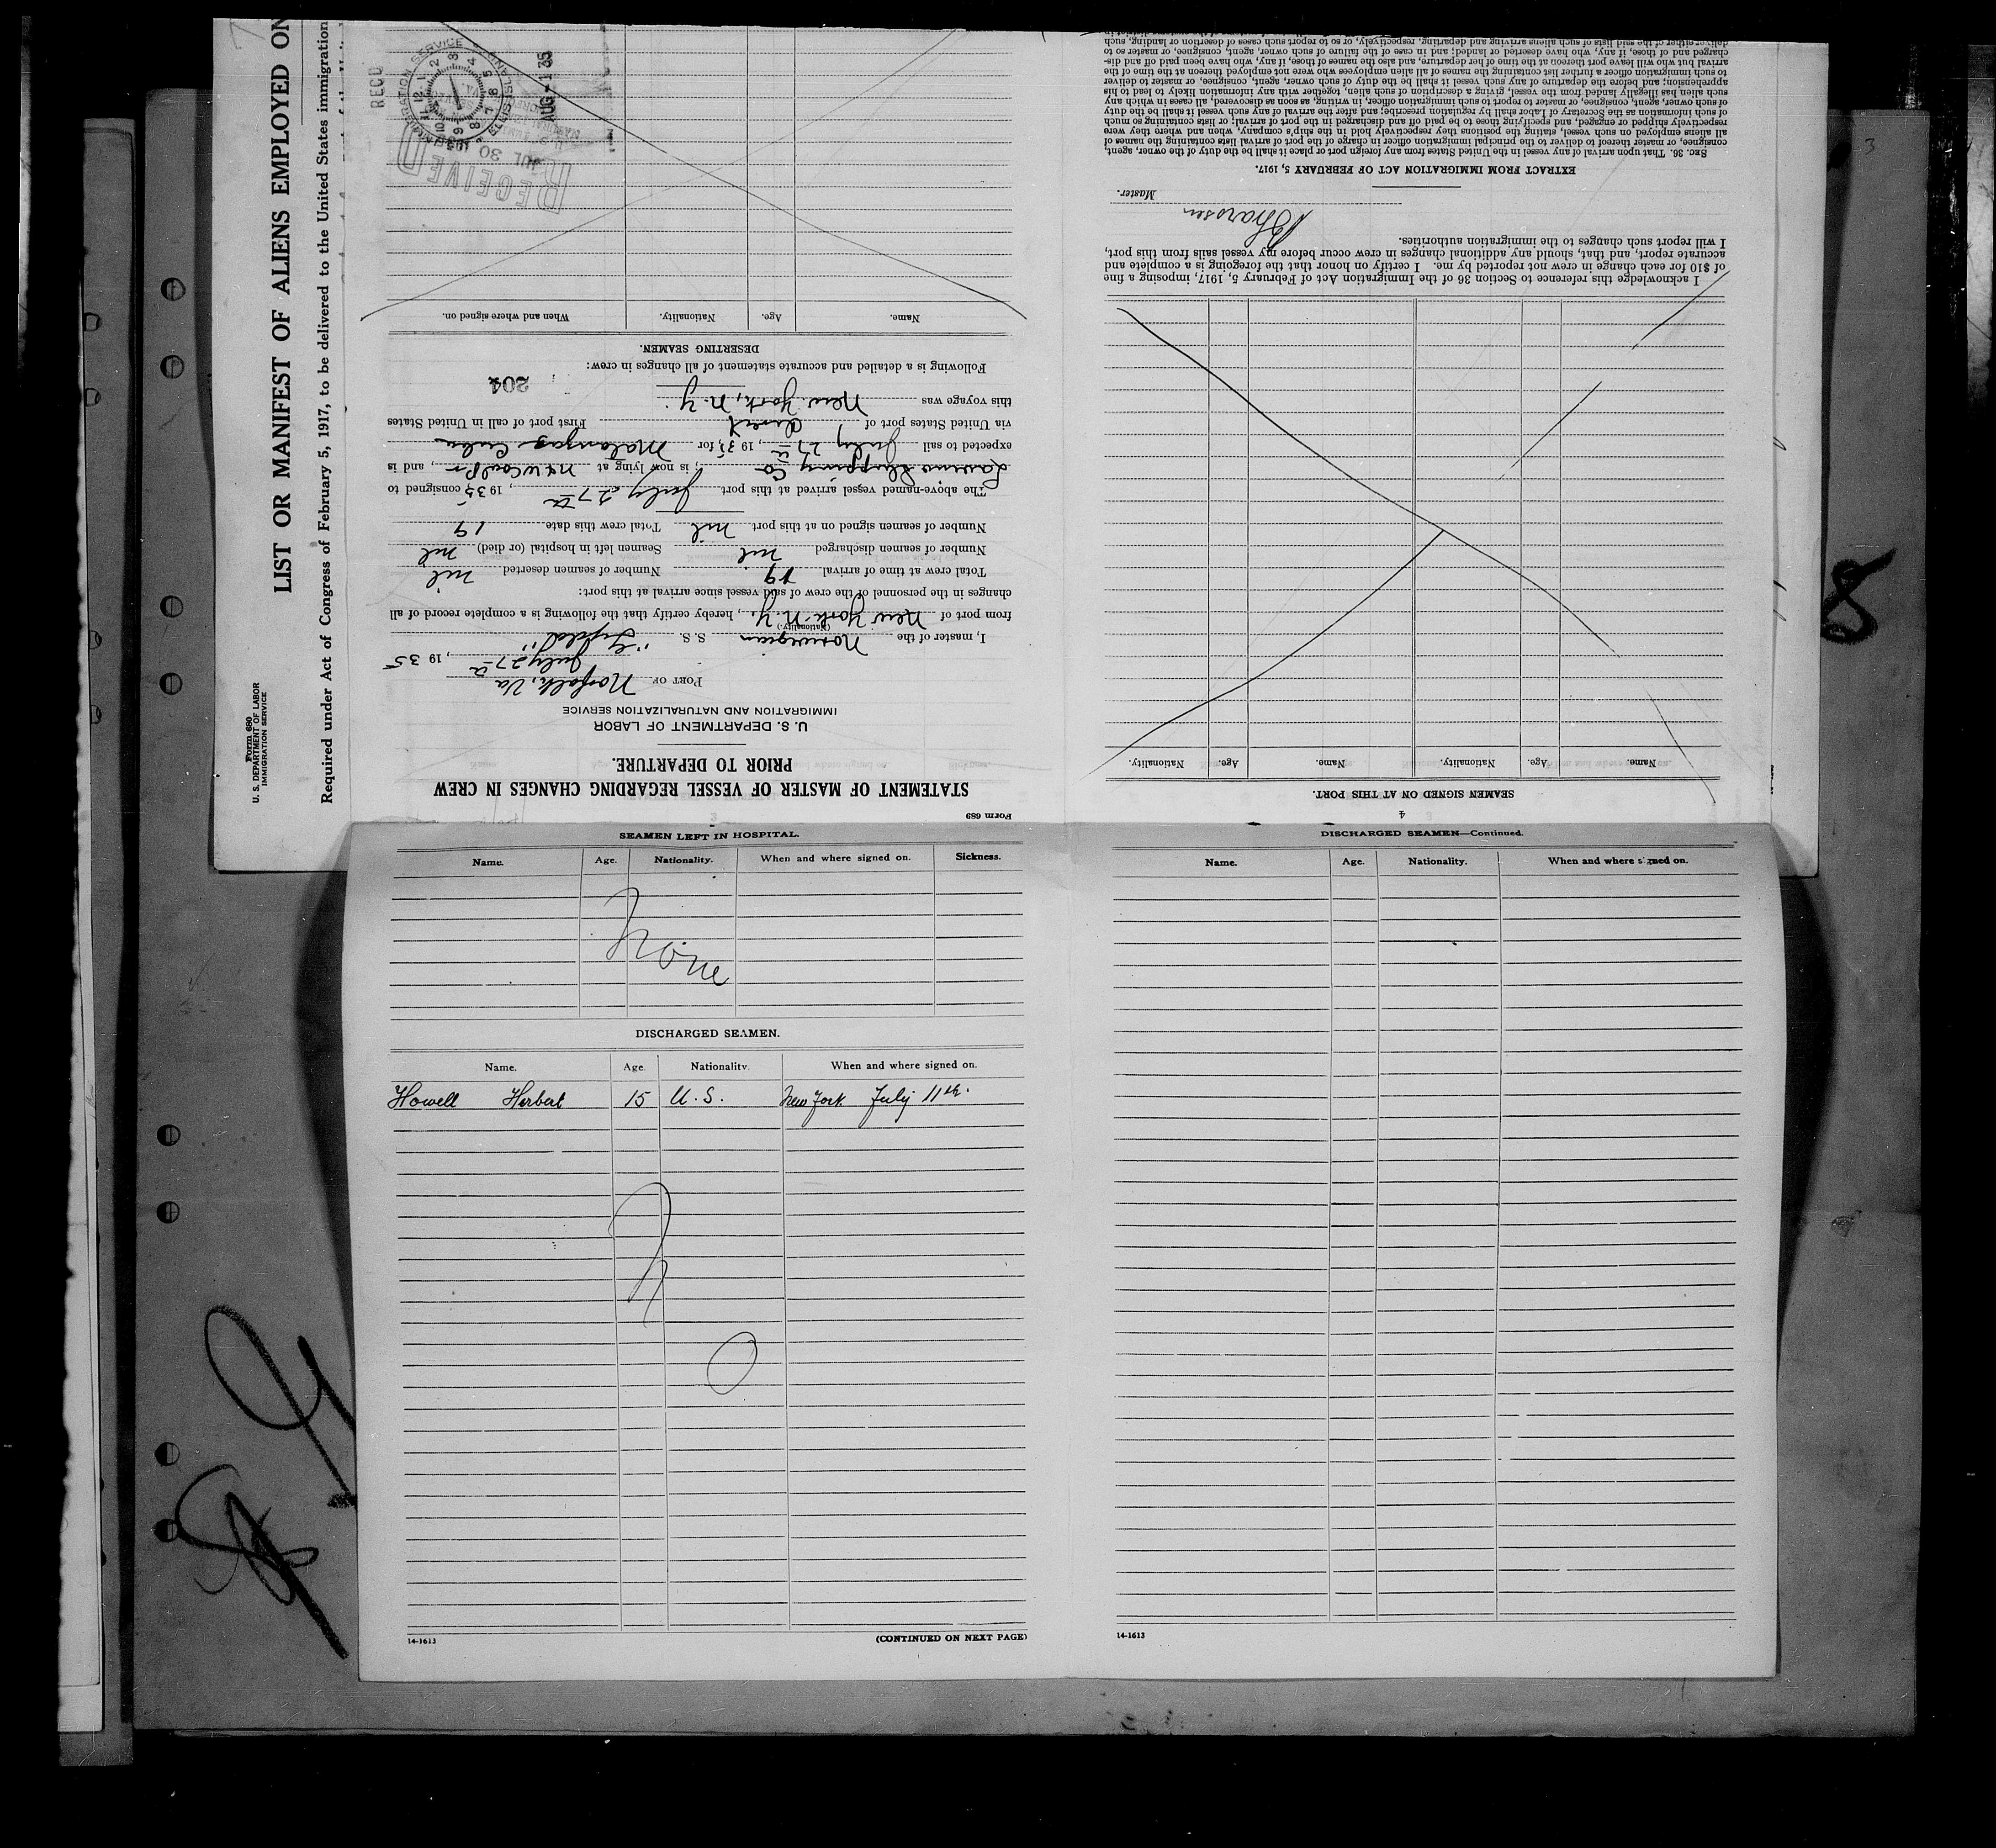 Form 680
U. S. DEPARTMENT OF LABOR
IMMIGRATION SERVICE
LIST OR MANIFEST OF ALIENS EMPLOYED ON
Required under Act of Congress of February 5, 1917, to be delivered to the United States immigration
Form 689
STATEMENT OF MASTER OF VESSEL REGARDING CHANGES IN CREW
PRIOR TO DEPARTURE.
U. S. DEPARTMENT OF LABOR
IMMIGRATION AND NATURALIZATION SERVICE
PORT OF Norfolk, Va
July 27th, 1935
I, master of the Norwegian S. S.
(Nationality.)
from port of New York N.Y., hereby certify that the following is a complete record of all
changes in the personnel of the crew of said vessel since arrival at this port:
Total crew at time of arrival 19 Number of seamen deserted nil
Number of seamen discharged nil Seamen left in hospital (or died) nil
Number of seamen signed on at this port nil Total crew this date 19
The above-named vessel arrived at this port July 27th, 1935 consigned to
Shipping Co, is now lying at, and is
expected to sail July 27th, 1935 for Matanzas Cuba
via United States port of direct First port of call in United States
this voyage was New York, N.Y.
Following is a detailed and accurate statement of all changes in crew:
204
DESERTING SEAMEN.
Name. Age. Nationality. When and where signed on.
RECEIVED
JUL 30
IMMIGRATION SERVICE
ELLIS ISLAND
RECD
AUG -1 35
4
SEAMEN SIGNED ON AT THIS PORT.
Name. Age. Nationality. Name. Age. Nationality.
I acknowledge this reference to Section 36 of the Immigration Act of February 5, 1917, imposing a fine
of $10 for each change in crew not reported by me. I certify on honor that the foregoing is a complete and
accurate report, and that, should any additional changes in crew occur before my vessel sails from this port,
I will report such changes to the immigration authorities.
Master.
EXTRACT FROM IMMIGRATION ACT OF FEBRUARY 5, 1917.
SEC. 36. That upon arrival of any vessel in the United States from any foreign port or place it shall be the duty of the owner, agent,
consignee, or master thereof to deliver to the principal immigration officer in charge of the port of arrival lists containing the names of
all aliens employed on such vessel, stating the positions they respectively hold in the ship's company, when and where they were
respectively shipped or engaged, and specifying those to be paid off and discharged in the port of arrival; or lists containing so much
of such information as the Secretary of Labor shall by regulation prescribe; and after the arrival of any such vessel it shall be the duty
of such owner, agent, consignee, or master to report to such immigration officer, in writing, as soon as discovered, all cases in which any
such alien has illegally landed from the vessel, giving a description of such alien, together with any information likely to lead to his
apprehension; and before the departure of any such vessel it shall be the duty of such owner, agent, consignee, or master to deliver
to such immigration officer a further list containing the names of all alien employees who were not employed thereon at the time of the
arrival but who will leave port thereon at the time of her departure, and also the names of those, if any, who have been paid off and dis-
charged and of those, if any, who have deserted or landed; and in case of the failure of such owner, agent, consignee, or master so to
deliver either of the said lists of such aliens arriving and departing, respectively, or so to report such cases of desertion or landing, such
SEAMEN LEFT IN HOSPITAL.
Name. Age. Nationality. When and where signed on. Sickness.
None
DISCHARGED SEAMEN.
Name. Age. Nationality. When and where signed on.
Howell Herbert 15 U.S. New York July 11th.
14-1613
(CONTINUED ON NEXT PAGE)
DISCHARGED SEAMEN—Continued.
Name. Age. Nationality. When and where signed on.
14-1613
8
3